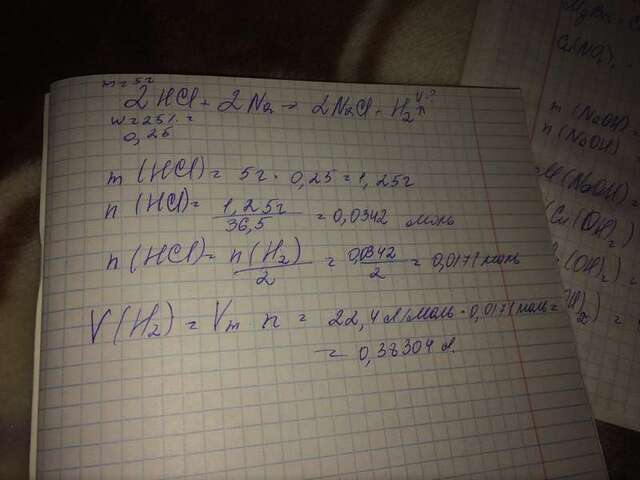 m=5г
2HCl + 2Na → 2NaCl + H₂↑ V-?
w=25%=
0,25
m(HCl)= 5г · 0,25 = 1,25г
n(HCl)= 1,25г / 36,5 = 0,0342 моль
n(HCl)= n(H₂) / 2 = 0,0342 / 2 = 0,0171 моль
V(H₂) = Vm n = 22,4 л/моль · 0,0171 моль =
= 0,38304 л.
MgBr
m(NaOH)
n(NaOH)
(NaOH)=
(Cu(OH)₂)
(OH)₂) =